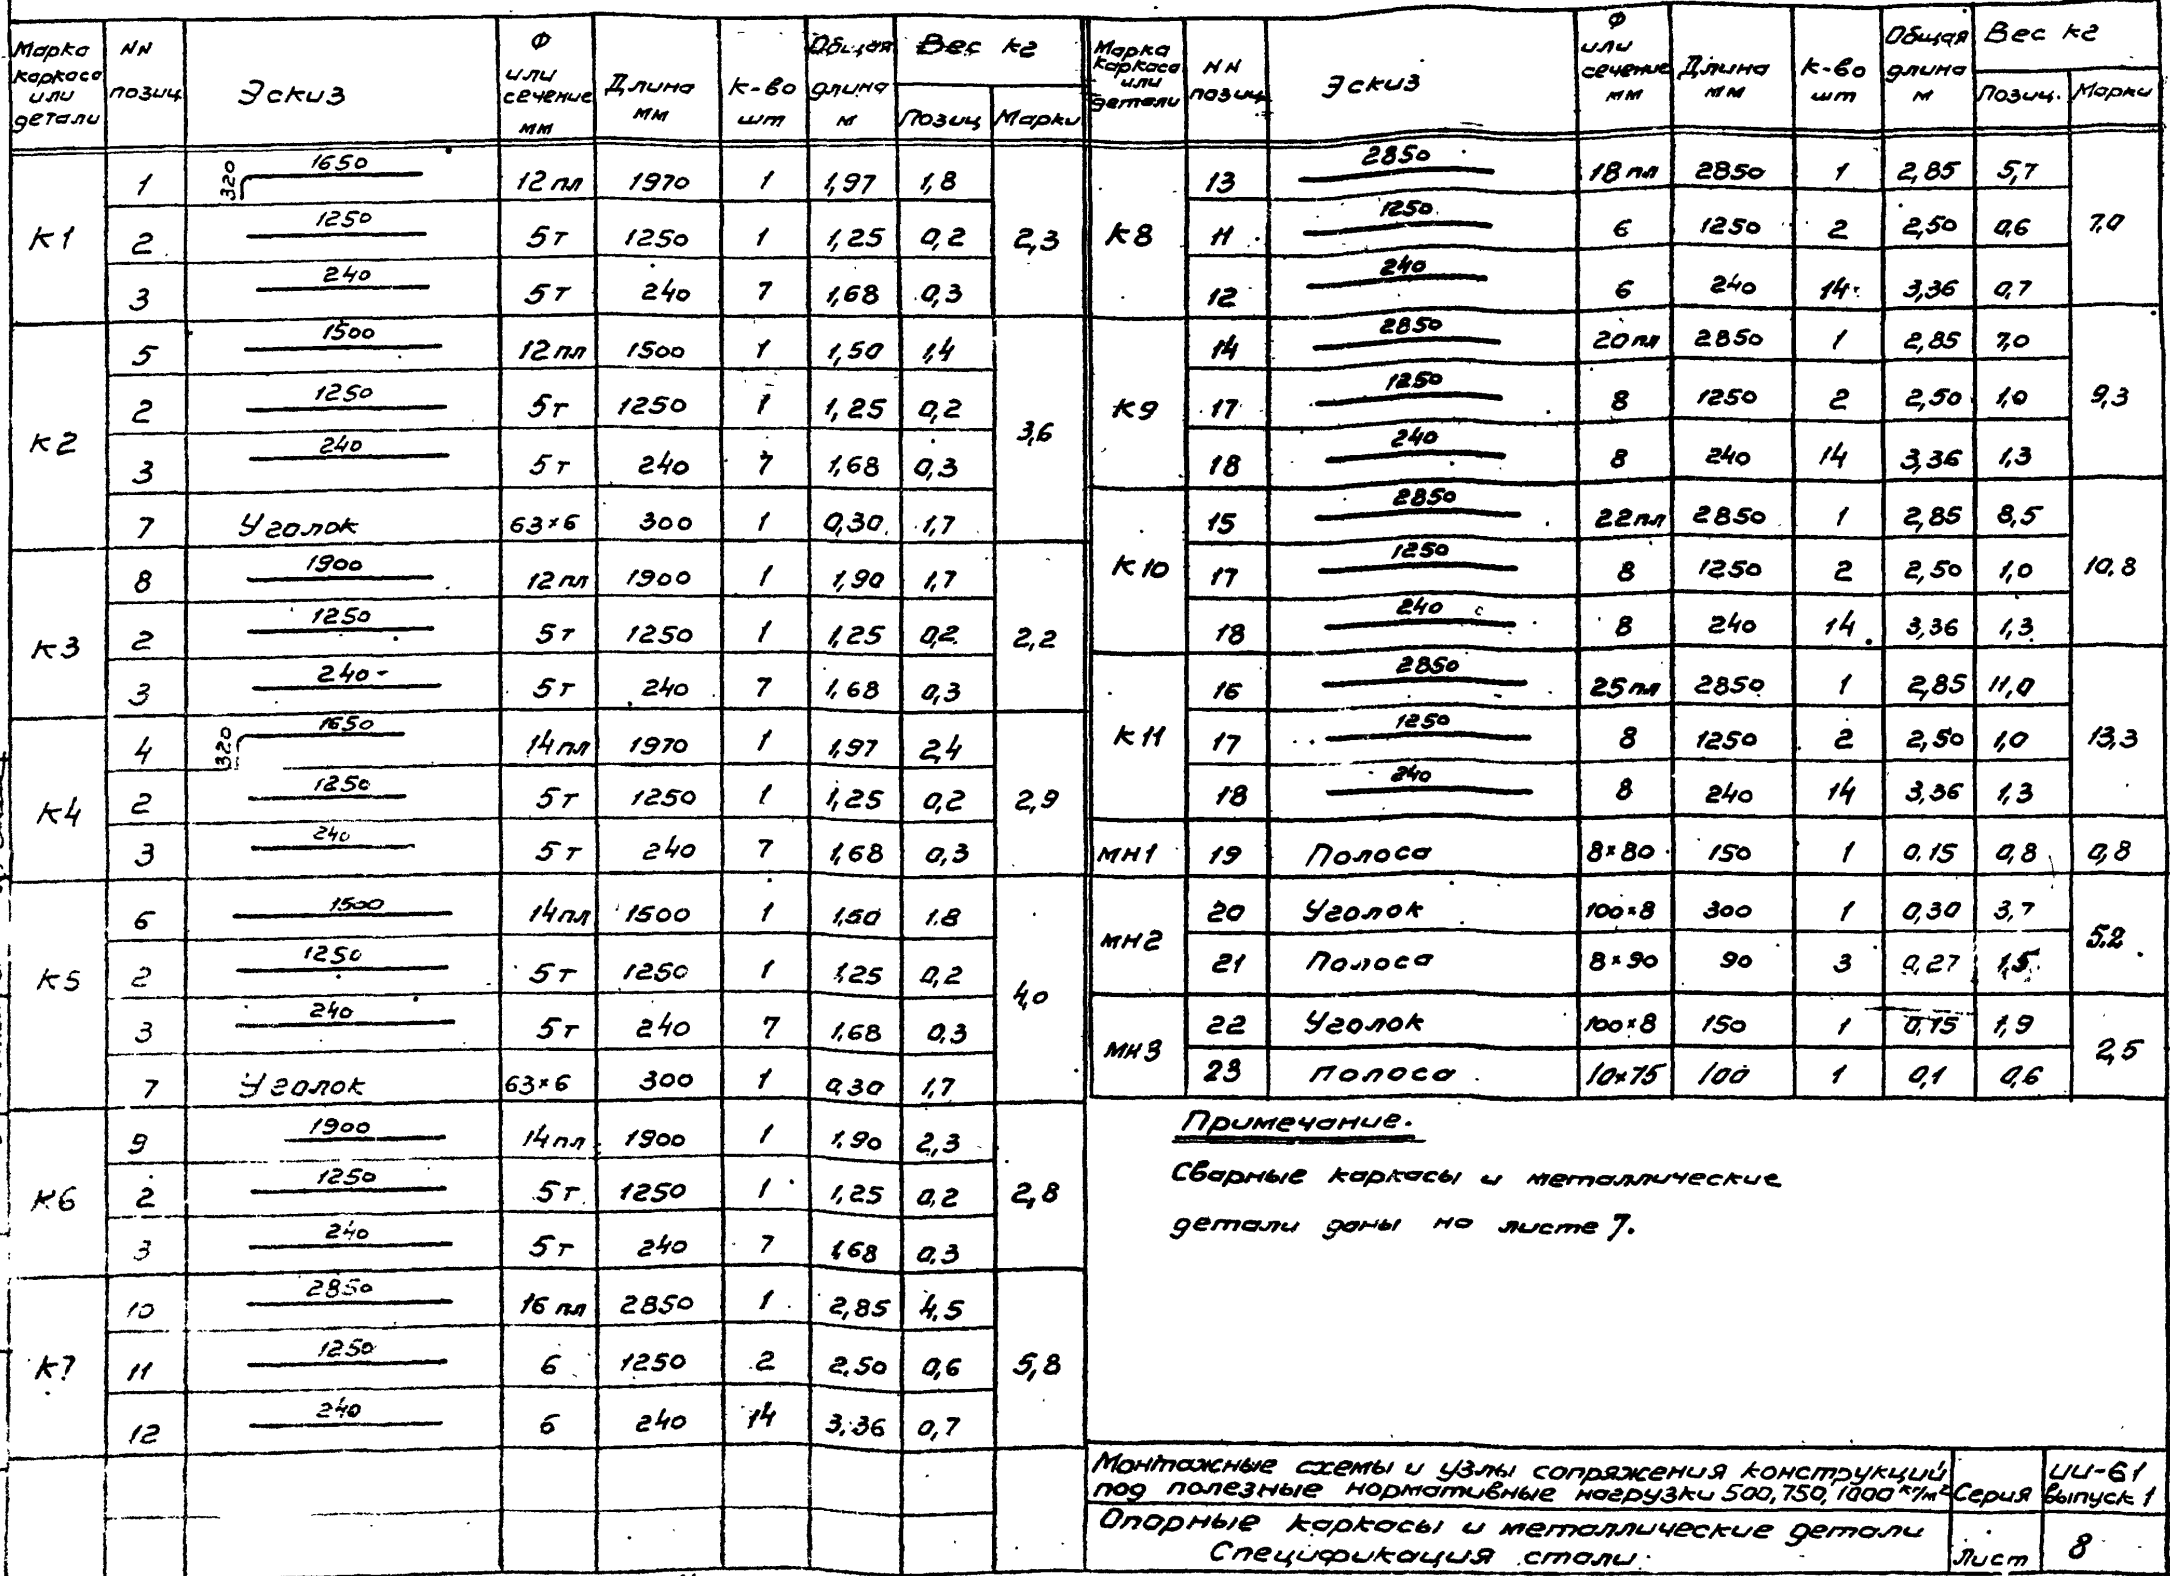 Марка каркаса или детали | NN позиц | Эскиз | Ф или сечение мм | Длина мм | К-во шт | Общая длина м | Вес кг Позиц | Вес кг Марки
К1 | 1 | 320 1650 | 12пл | 1970 | 1 | 1,97 | 1,8 | 2,3
2 | 1250 | 5т | 1250 | 1 | 1,25 | 0,2
3 | 240 | 5т | 240 | 7 | 1,68 | 0,3
К2 | 5 | 1500 | 12пл | 1500 | 1 | 1,50 | 1,4 | 3,6
2 | 1250 | 5т | 1250 | 1 | 1,25 | 0,2
3 | 240 | 5т | 240 | 7 | 1,68 | 0,3
7 | Уголок | 63×6 | 300 | 1 | 0,30 | 1,7
К3 | 8 | 1900 | 12пл | 1900 | 1 | 1,90 | 1,7 | 2,2
2 | 1250 | 5т | 1250 | 1 | 1,25 | 0,2
3 | 240 | 5т | 240 | 7 | 1,68 | 0,3
К4 | 4 | 320 1650 | 14пл | 1970 | 1 | 1,97 | 2,4 | 2,9
2 | 1250 | 5т | 1250 | 1 | 1,25 | 0,2
3 | 240 | 5т | 240 | 7 | 1,68 | 0,3
К5 | 6 | 1500 | 14пл | 1500 | 1 | 1,50 | 1.8 | 4,0
2 | 1250 | 5т | 1250 | 1 | 1,25 | 0,2
3 | 240 | 5т | 240 | 7 | 1,68 | 0,3
7 | Уголок | 63×6 | 300 | 1 | 0,30 | 1,7
К6 | 9 | 1900 | 14пл | 1900 | 1 | 1.90 | 2,3 | 2,8
2 | 1250 | 5т | 1250 | 1 | 1,25 | 0,2
3 | 240 | 5т | 240 | 7 | 1,68 | 0,3
К7 | 10 | 2850 | 16пл | 2850 | 1 | 2,85 | 4,5 | 5,8
11 | 1250 | 6 | 1250 | 2 | 2.50 | 0,6
12 | 240 | 6 | 240 | 14 | 3,36 | 0,7
Марка каркаса или детали | NN позиц | Эскиз | Ф или сечение мм | Длина мм | К-во шт | Общая длина м | Вес кг Позиц. | Вес кг Марки
К8 | 13 | 2850 | 18пл | 2850 | 1 | 2,85 | 5,7 | 7,0
11 | 1250 | 6 | 1250 | 2 | 2,50 | 0,6
12 | 240 | 6 | 240 | 14 | 3,36 | 0,7
К9 | 14 | 2850 | 20пл | 2850 | 1 | 2,85 | 7,0 | 9,3
17 | 1250 | 8 | 1250 | 2 | 2,50 | 1,0
18 | 240 | 8 | 240 | 14 | 3,36 | 1,3
К10 | 15 | 2850 | 22пл | 2850 | 1 | 2,85 | 8,5 | 10,8
17 | 1250 | 8 | 1250 | 2 | 2,50 | 1,0
18 | 240 | 8 | 240 | 14 | 3,36 | 1,3
К11 | 16 | 2850 | 25пл | 2850 | 1 | 2,85 | 11,0 | 13,3
17 | 1250 | 8 | 1250 | 2 | 2,50 | 1,0
18 | 240 | 8 | 240 | 14 | 3,36 | 1,3
МН1 | 19 | Полоса | 8×80 | 150 | 1 | 0.15 | 0,8 | 0,8
МН2 | 20 | Уголок | 100×8 | 300 | 1 | 0,30 | 3,7 | 5.2
21 | Полоса | 8×90 | 90 | 3 | 0,27 | 1,5
МН3 | 22 | Уголок | 100×8 | 150 | 1 | 0,15 | 1,9 | 2,5
23 | Полоса | 10×75 | 100 | 1 | 0,1 | 0,6
Примечание.
Сварные каркасы и металлические
детали даны на листе 7.
Монтажные схемы и узлы сопряжения конструкций
под полезные нормативные нагрузки 500, 750, 1000 кг/м²
Серия
ИИ-61
выпуск 1
Опорные каркасы и металлические детали
Спецификация стали.
Лист
8